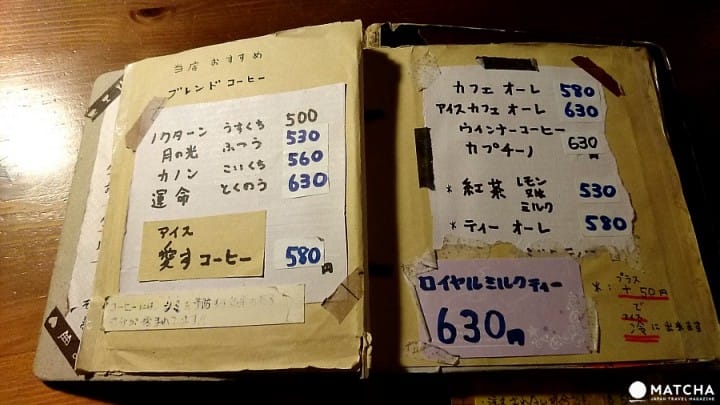 当店 おすすめ
ブレンド コーヒー
ノクターン うすくち 500
月の光 ふつう 530
カノン こいくち 560
運命 とくのう 630
アイス
愛す コーヒー 580円
コーヒーには シミを予防
カフェ オーレ 580
アイスカフェ オーレ 630
ウインナーコーヒー
カプチーノ 630
* 紅茶 レモン
ミルク 530
* ティー オーレ 580
ロイヤルミルクティー
630円
*: プラス
+50円
で
アイス
冷に出来ます
MATCHA
JAPAN TRAVEL MAGAZINE